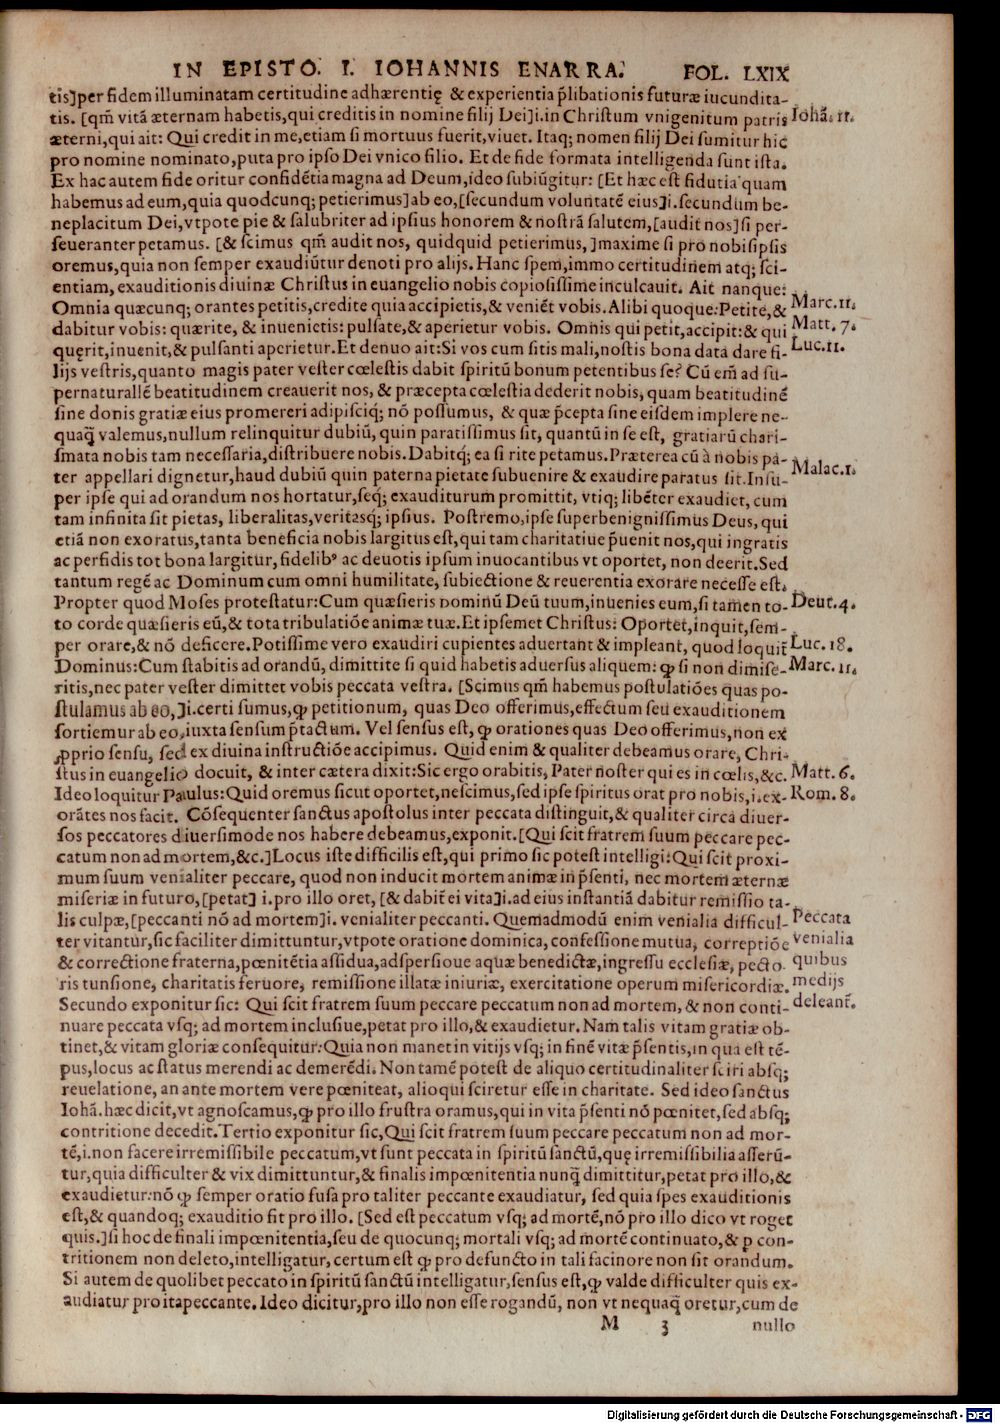 IN EPISTO. I. IOHANNIS ENARRA. FOL. LXIX
tis]per fidem illuminatam certitudine adhærentię & experientia p̃libationis futuræ iucundita-
tis. [qm̃ vitā æternam habetis,qui creditis in nomine filij Dei]i.in Christum vnigenitum patris
Iohā. 11.
æterni,qui ait: Qui credit in me,etiam si mortuus fuerit,viuet. Itaq; nomen filij Dei sumitur hic
pro nomine nominato,puta pro ipso Dei vnico filio. Et de fide formata intelligenda sunt ista.
Ex hac autem fide oritur confidētia magna ad Deum,ideo subiūgitur: [Et hæc est fidutia quam
habemus ad eum,quia quodcunq; petierimus]ab eo,[secundum voluntatē eius]i.secundum be-
neplacitum Dei,vtpote pie & salubriter ad ipsius honorem & nostrā salutem,[audit nos]si per-
seueranter petamus. [& scimus qm̃ audit nos, quidquid petierimus,]maxime si pro nobisipsis
oremus,quia non semper exaudiūtur denoti pro alijs. Hanc spem,immo certitudinem atq; sci-
entiam, exauditionis diuinæ Christus in euangelio nobis copiosissime inculcauit. Ait nanque:
Omnia quæcunq; orantes petitis,credite quia accipietis,& veniēt vobis. Alibi quoque:Petite,&
Marc.11.
dabitur vobis: quærite, & inuenietis: pulsate,& aperietur vobis. Omnis qui petit,accipit:& qui
Matt. 7.
quęrit,inuenit,& pulsanti aperietur.Et denuo ait:Si vos cum sitis mali,nostis bona data dare fi-
Luc.11.
lijs vestris,quanto magis pater vester cœlestis dabit spiritū bonum petentibus se? Cū em̃ ad su-
pernaturallē beatitudinem creauerit nos, & præcepta cœlestia dederit nobis, quam beatitudinē
sine donis gratiæ eius promereri adipisciq́; nō possumus, & quæ p̃cepta sine eisdem implere ne-
quaq̃ valemus,nullum relinquitur dubiū, quin paratissimus sit, quantū in se est, gratiarū chari-
smata nobis tam necessaria,distribuere nobis.Dabitq́; ea si rite petamus.Præterea cū à nobis pa-
ter appellari dignetur,haud dubiū quin paterna pietate subuenire & exaudire paratus sit.Insu-
Malac.1.
per ipse qui ad orandum nos hortatur,seq́; exauditurum promittit, vtiq; libēter exaudiet, cum
tam infinita sit pietas, liberalitas,veritasq́; ipsius. Postremo,ipse superbenignissimus Deus, qui
etiā non exoratus,tanta beneficia nobis largitus est,qui tam charitatiue p̃uenit nos,qui ingratis
ac perfidis tot bona largitur, fidelibꝰ ac deuotis ipsum inuocantibus vt oportet, non deerit.Sed
tantum regē ac Dominum cum omni humilitate, subiectione & reuerentia exorare necesse est.
Propter quod Moses protestatur:Cum quæsieris Dominū Deū tuum,inuenies eum,si tamen to-
Deut.4.
to corde quæsieris eū,& tota tribulatiōe animæ tuæ.Et ipsemet Christus: Oportet,inquit,sem-
per orare,& nō deficere.Potissime vero exaudiri cupientes aduertant & impleant, quod loquit̃
Luc. 18.
Dominus:Cum stabitis ad orandū, dimittite si quid habetis aduersus aliquem: ꝙ si non dimise-
Marc.11.
ritis,nec pater vester dimittet vobis peccata vestra. [Scimus qm̃ habemus postulatiōes quas po-
stulamus ab eo,]i.certi sumus,ꝙ petitionum, quas Deo offerimus,effectum seu exauditionem
sortiemur ab eo,iuxta sensum p̃tactum. Vel sensus est, ꝙ orationes quas Deo offerimus,non ex
ꝓprio sensu, sed ex diuina instructiōe accipimus. Quid enim & qualiter debeamus orare, Chri-
stus in euangelio docuit, & inter cætera dixit:Sic ergo orabitis, Pater noster qui es in cœlis,&c.
Matt. 6.
Ideo loquitur Paulus:Quid oremus sicut oportet,nescimus,sed ipse spiritus orat pro nobis,i.ex-
Rom. 8.
orātes nos facit. Cōsequenter sanctus apostolus inter peccata distinguit,& qualiter circa diuer-
sos peccatores diuersimode nos habere debeamus,exponit.[Qui scit fratrem suum peccare pec-
catum non ad mortem,&c.]Locus iste difficilis est,qui primo sic potest intelligi:Qui scit proxi-
mum suum venialiter peccare, quod non inducit mortem animæ in p̃senti, nec mortem æternæ
miseriæ in futuro,[petat] i.pro illo oret, [& dabit̃ ei vita]i.ad eius instantiā dabitur remissio ta-
lis culpæ,[peccanti nō ad mortem]i. venialiter peccanti. Quemadmodū enim venialia difficul-
Peccata
ter vitantur,sic faciliter dimittuntur,vtpote oratione dominica,confessione mutua, correptiōe
venialia
& correctione fraterna,pœnitētia assidua,adspersioue aquæ benedictæ,ingressu ecclesiæ, pecto
quibus
ris tunsione, charitatis feruore, remissione illatæ iniuriæ, exercitatione operum misericordiæ.
medijs
Secundo exponitur sic: Qui scit fratrem suum peccare peccatum non ad mortem, & non conti-
deleant̃.
nuare peccata vsq; ad mortem inclusiue,petat pro illo,& exaudietur. Nam talis vitam gratiæ ob-
tinet,& vitam gloriæ consequitur:Quia non manet in vitijs vsq; in finē vitæ p̃sentis,in qua est tē-
pus,locus ac status merendi ac demerēdi.Non tamē potest de aliquo certitudinaliter sciri absq;
reuelatione, an ante mortem vere pœniteat, alioqui sciretur esse in charitate. Sed ideo sanctus
Iohā.hæc dicit,vt agnoscamus,ꝙ pro illo frustra oramus,qui in vita p̃senti nō pœnitet,sed absq;
contritione decedit.Tertio exponitur sic,Qui scit fratrem suum peccare peccatum non ad mor-
tē,i.non facere irremissibile peccatum,vt sunt peccata in spiritū sanctū,quę irremissibilia asserū-
tur,quia difficulter & vix dimittuntur,& finalis impœnitentia nunq̃ dimittitur,petat pro illo,&
exaudietur:nō ꝙ semper oratio fusa pro taliter peccante exaudiatur, sed quia spes exauditionis
est,& quandoq; exauditio fit pro illo. [Sed est peccatum vsq; ad mortē,nō pro illo dico vt roget
quis.]si hoc de finali impœnitentia,seu de quocunq; mortali vsq; ad mortē continuato,& ꝑ con-
tritionem non deleto,intelligatur,certum est ꝙ pro defuncto in tali facinore non sit orandum.
Si autem de quolibet peccato in spiritū sanctū intelligatur,sensus est,ꝙ valde difficulter quis ex-
audiatur pro ita peccante.Ideo dicitur,pro illo non esse rogandū, non vt nequaq̃ oretur,cum de
M 3 nullo
Digitalisierung gefördert durch die Deutsche Forschungsgemeinschaft - DFG